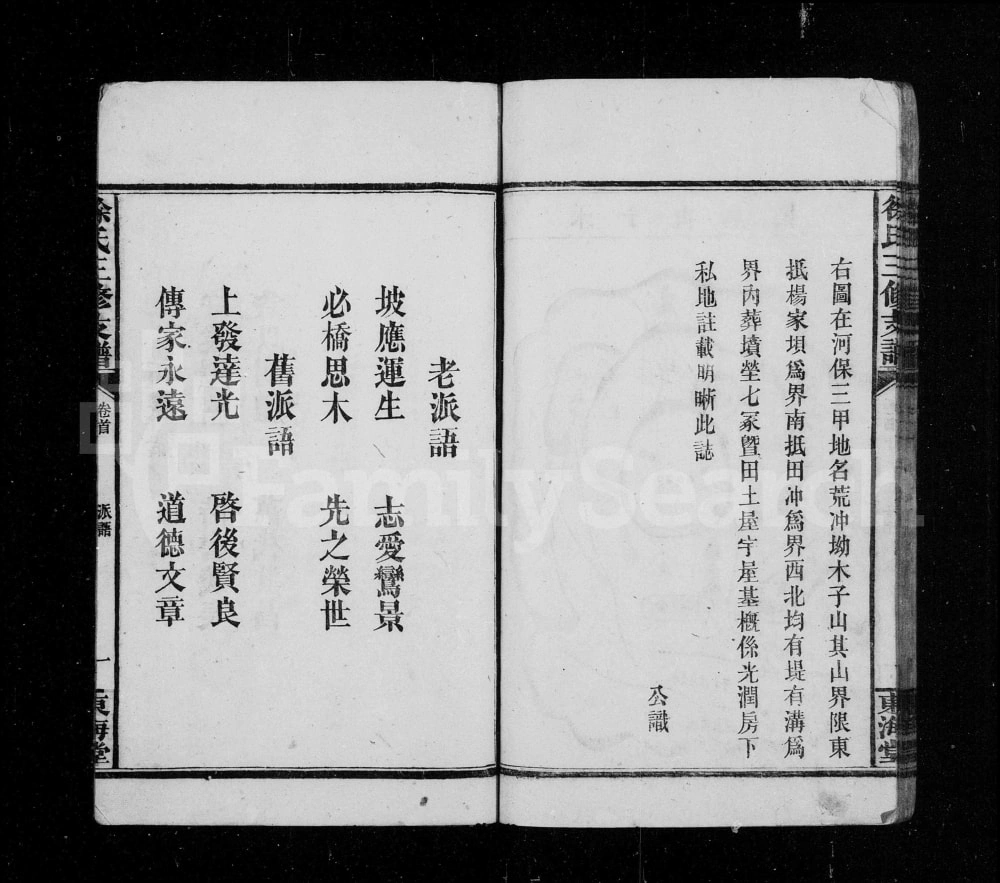 徐氏三修支譜
東海堂
右圖在河保三甲地名荒冲坳木子山其山界限東
抵楊家垻爲界南抵田冲爲界西北均有堤有溝爲
界內葬墳塋七冢暨田土屋宇屋基槪係光潤房下
私地註載明晰此誌
公識
老派語
坡應運生 志愛鸞景
必橋思木 先之榮世
舊派語
上發達光 啓後賢良
傳家永遠 道德文章
徐氏三修支譜
卷首
派語
一
東海堂
FamilySearch